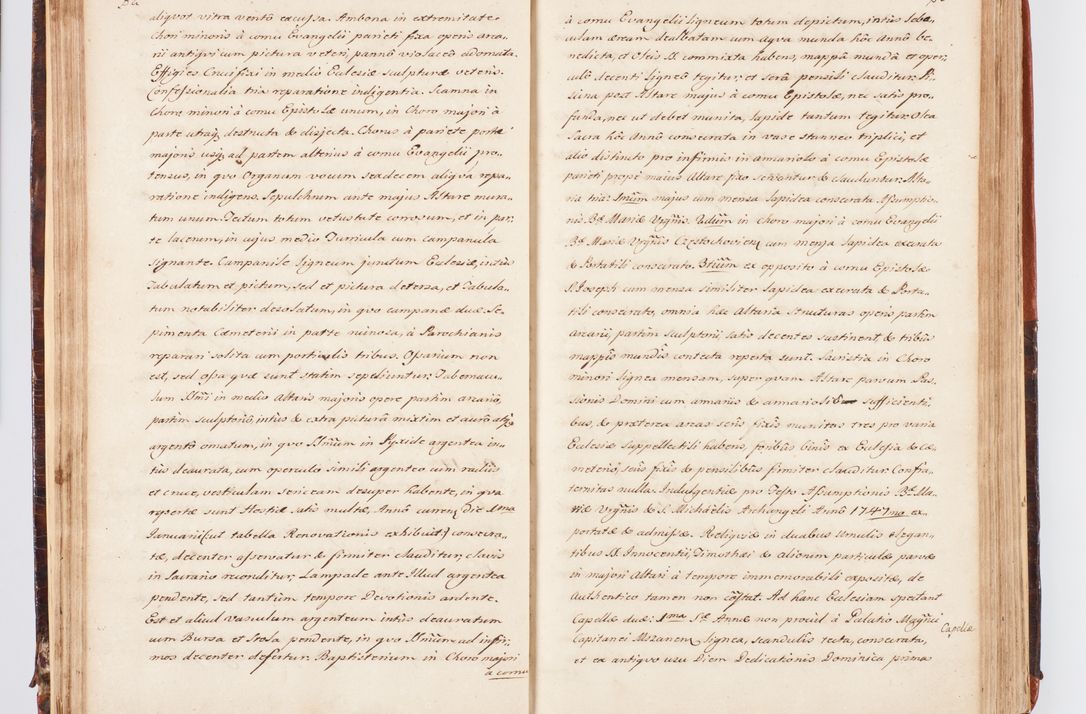 aliqvot vitra ventô excussa. Ambona in extremitate
Chori minoris â cornu Evangelii parieti fixa operis arca-
rii antiqvi cum picturâ veteri, pannô violaceô adornata.
Effigies Crucifixi in mediô Eclesiæ sculpturæ veteris.
Confessionalia tria reparatione indigentia. Scamna in
Choro minori â cornu Epistolæ unum, in Chorô majori â
parte utraq, destructa & disjecta. Chorus â pariete portæ
majoris usq; ad partem alterius â cornu Evangelii pro-
tensus, in qvo Organum vocum sexdecem aliqva repa-
ratione indigens. Sepulchrum ante majus Altare mura-
tum unum. Tectum totum vetustate corrosum, et in par-
te lacerum, in cujus medio Turricula cum campanula
signante. Campanile ligneum junctum Eclesiæ, intus
Tabulatum et pictum, sed et pictura detersa, et Tabula-
tum notabiliter desolatum, in qvo campanæ duæ. Se-
pimenta Cæmeterii in parte ruinosa, â Parochianis
reparari solita cum portulis tribus. Ossarium non
est, sed ossa qvæ sunt statim sepeliuntur. Tabernacu-
lum SSmi in medio Altaris majoris opere partim arcariô,
partim sculptoriô, intus & extra picturâ mixtim et aurô atq;
argentô ornatum, in qvo SSmum in Pyxide argentea in-
tus deaurata, cum operculo simili argenteo cum radiis
et cruce, vesticulam sericeam desuper habente, in qva
repertæ sunt Hostiæ satis multæ, Annô curren: Die 1ma
Januarii (ut tabella Renovationis exhibuit) consecra-
tæ, decenter asservatur & firmiter clauditur, clavis
in Sacrario reconditur; Lampade ante Illud argentea
pendente, sed tantum tempore Devotionis ardente.
Est et aliud vasculum argenteum intus deauratum
cum Bursa et Stola pendente, in qvo SSmum ad infir-
mos decenter defertur. Baptisterium in Choro majori
â cornu
â cornu Evangelii ligneum totum depictum, intus Leba-
culum æream dealbatam cum aqva munda hôc Annô be-
nedicta, et Oleis SS. commixta habens, mappâ mundâ et oper-
culô decenti ligneô tegitur, et serâ pensili clauditur. Pi-
scina post Altare majus â cornu Epistolæ, nec satis pro-
funda, nec ut debet munita, lapide tantum tegitur. Olea
Sacra hôc Annô consecrata in vase stanneo triplici, et
alio distincto pro infirmis in armariolo â cornu Epistolæ
parieti prope maius Altare fixo servantur & clauduntur. Alta-
ria tria: 1mum majus cum mensa lapidea consecrata Assumptio-
nis B: Mariæ Vrgnis. 2dum in Choro majori â cornu Evangelii
B: Mariæ Vrgnis Częstochovien: cum mensa lapidea exevrata
& Portatili consecrato. 3tium ex opposito â cornu Epistolæ
S. Joseph cum mensa similiter lapidea exevrata & Porta-
tili consecrato, omnia hæc Altaria Structuras operis partim
arcarii, partim sculptorii, satis decentes sustinent, & tribus
mappis mundis contecta reperta sunt. Sacristia in Choro
minori lignea mensam, super qvam Altare parvum Pas-
sionis Domini cum armariis & armariolis sufficienti-
bus, & præterea arcas seris fixis munitas tres pro varia
Eclesiæ suppellectili habens, foribus binis ex Eclesia & Cæ-
meterio, seris fixis & pensilibus firmiter clauditur. Confra-
ternitas nulla. Indulgentiæ pro Festo Assumptionis B: Ma-
riæ Vrgnis & S. Michaëlis Archangeli Annô 1747mo ex-
portatæ & admissæ. Reliqviæ in duabus Urnulis elegan-
tibus SS. Innocentii, Timothei & aliorum particulæ parvæ
in majori Altari â tempore immemorabili expositæ, de
Authentico tamen non constat. Ad hanc Eclesiam spectant
Capellæ duæ: 1ma S: Annæ non procul â Palatio Magnci
Capitanei Mszanen: lignea, scandulis tecta, consecrata,
et ex antiqvo usu Diem Dedicationis Dominica prima
Capellæ